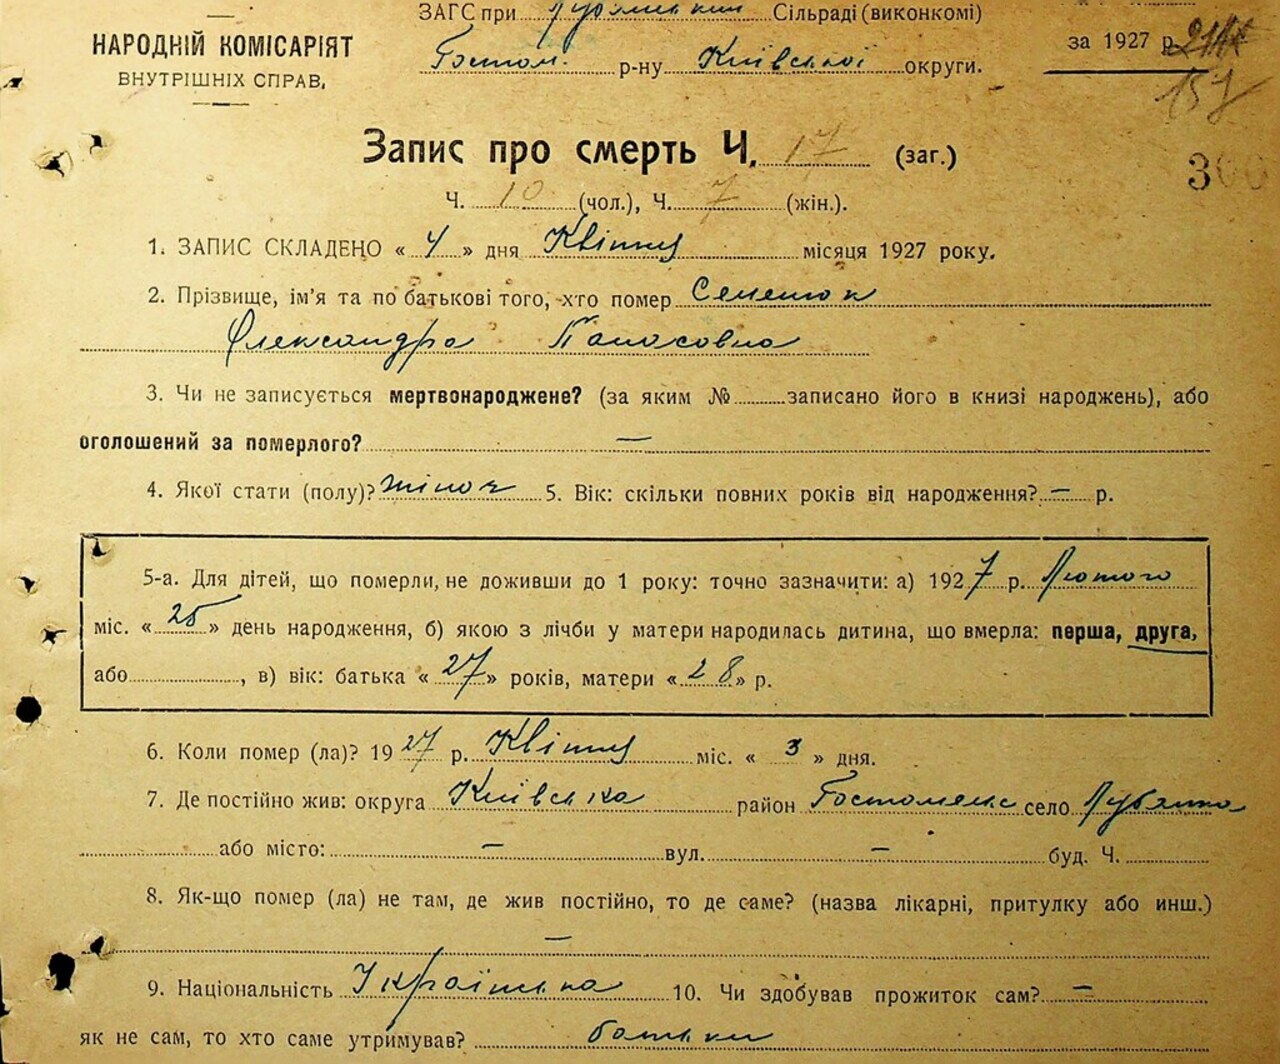 ЗАГС при Лубянській Сільраді (виконкомі)
НАРОДНІЙ КОМІСАРІЯТ
ВНУТРІШНІХ СПРАВ,
Гостом. р-ну Київської округи.
за 1927 р.
157
Запис про смерть Ч. 17 (заг.)
300
Ч. 10 (чол.), Ч. 7 (жін.).
1. ЗАПИС СКЛАДЕНО « 4 » дня Квітня місяця 1927 року.
2. Прізвище, ім'я та по батькові того, хто помер Семенюк
Олександра Панасовна
3. Чи не записується мертвонароджене? (за яким № записано його в книзі народжень), або
оголошений за померлого? —
4. Якої стати (полу)? жіноч 5. Вік: скільки повних років від народження? — р.
5-а. Для дітей, що померли, не доживши до 1 року: точно зазначити: а) 1927 р. Лютого
міс. « 25 » день народження, б) якою з лічби у матери народилась дитина, що вмерла: перша, друга,
або , в) вік: батька « 27 » років, матери « 28 » р.
6. Коли помер (ла)? 1927 р. Квітня міс. « 3 » дня.
7. Де постійно жив: округа Київська район Гостомельс село Лубянка
або місто: — вул. — буд. Ч.
8. Як-що помер (ла) не там, де жив постійно, то де саме? (назва лікарні, притулку або инш.)
—
9. Національність Українка 10. Чи здобував прожиток сам? —
як не сам, то хто саме утримував? батьки